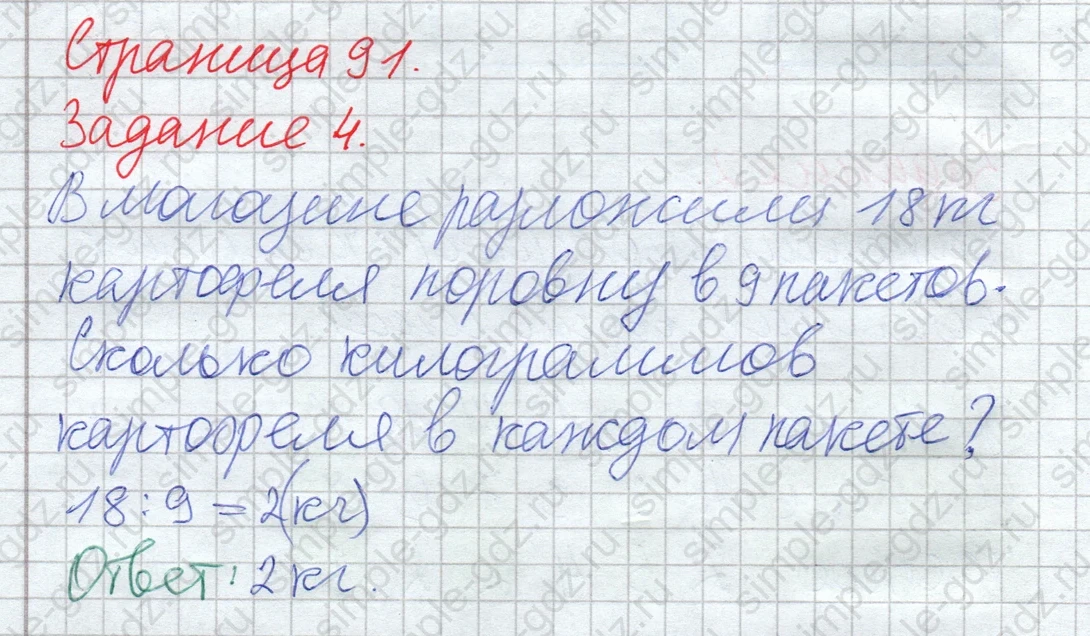 Страница 91.
Задание 4.
В магазине разложили 18 кг
картофеля поровну в 9 пакетов.
Сколько килограммов
картофеля в каждом пакете?
18:9=2(кг)
Ответ: 2кг.
simple-gdz.ru